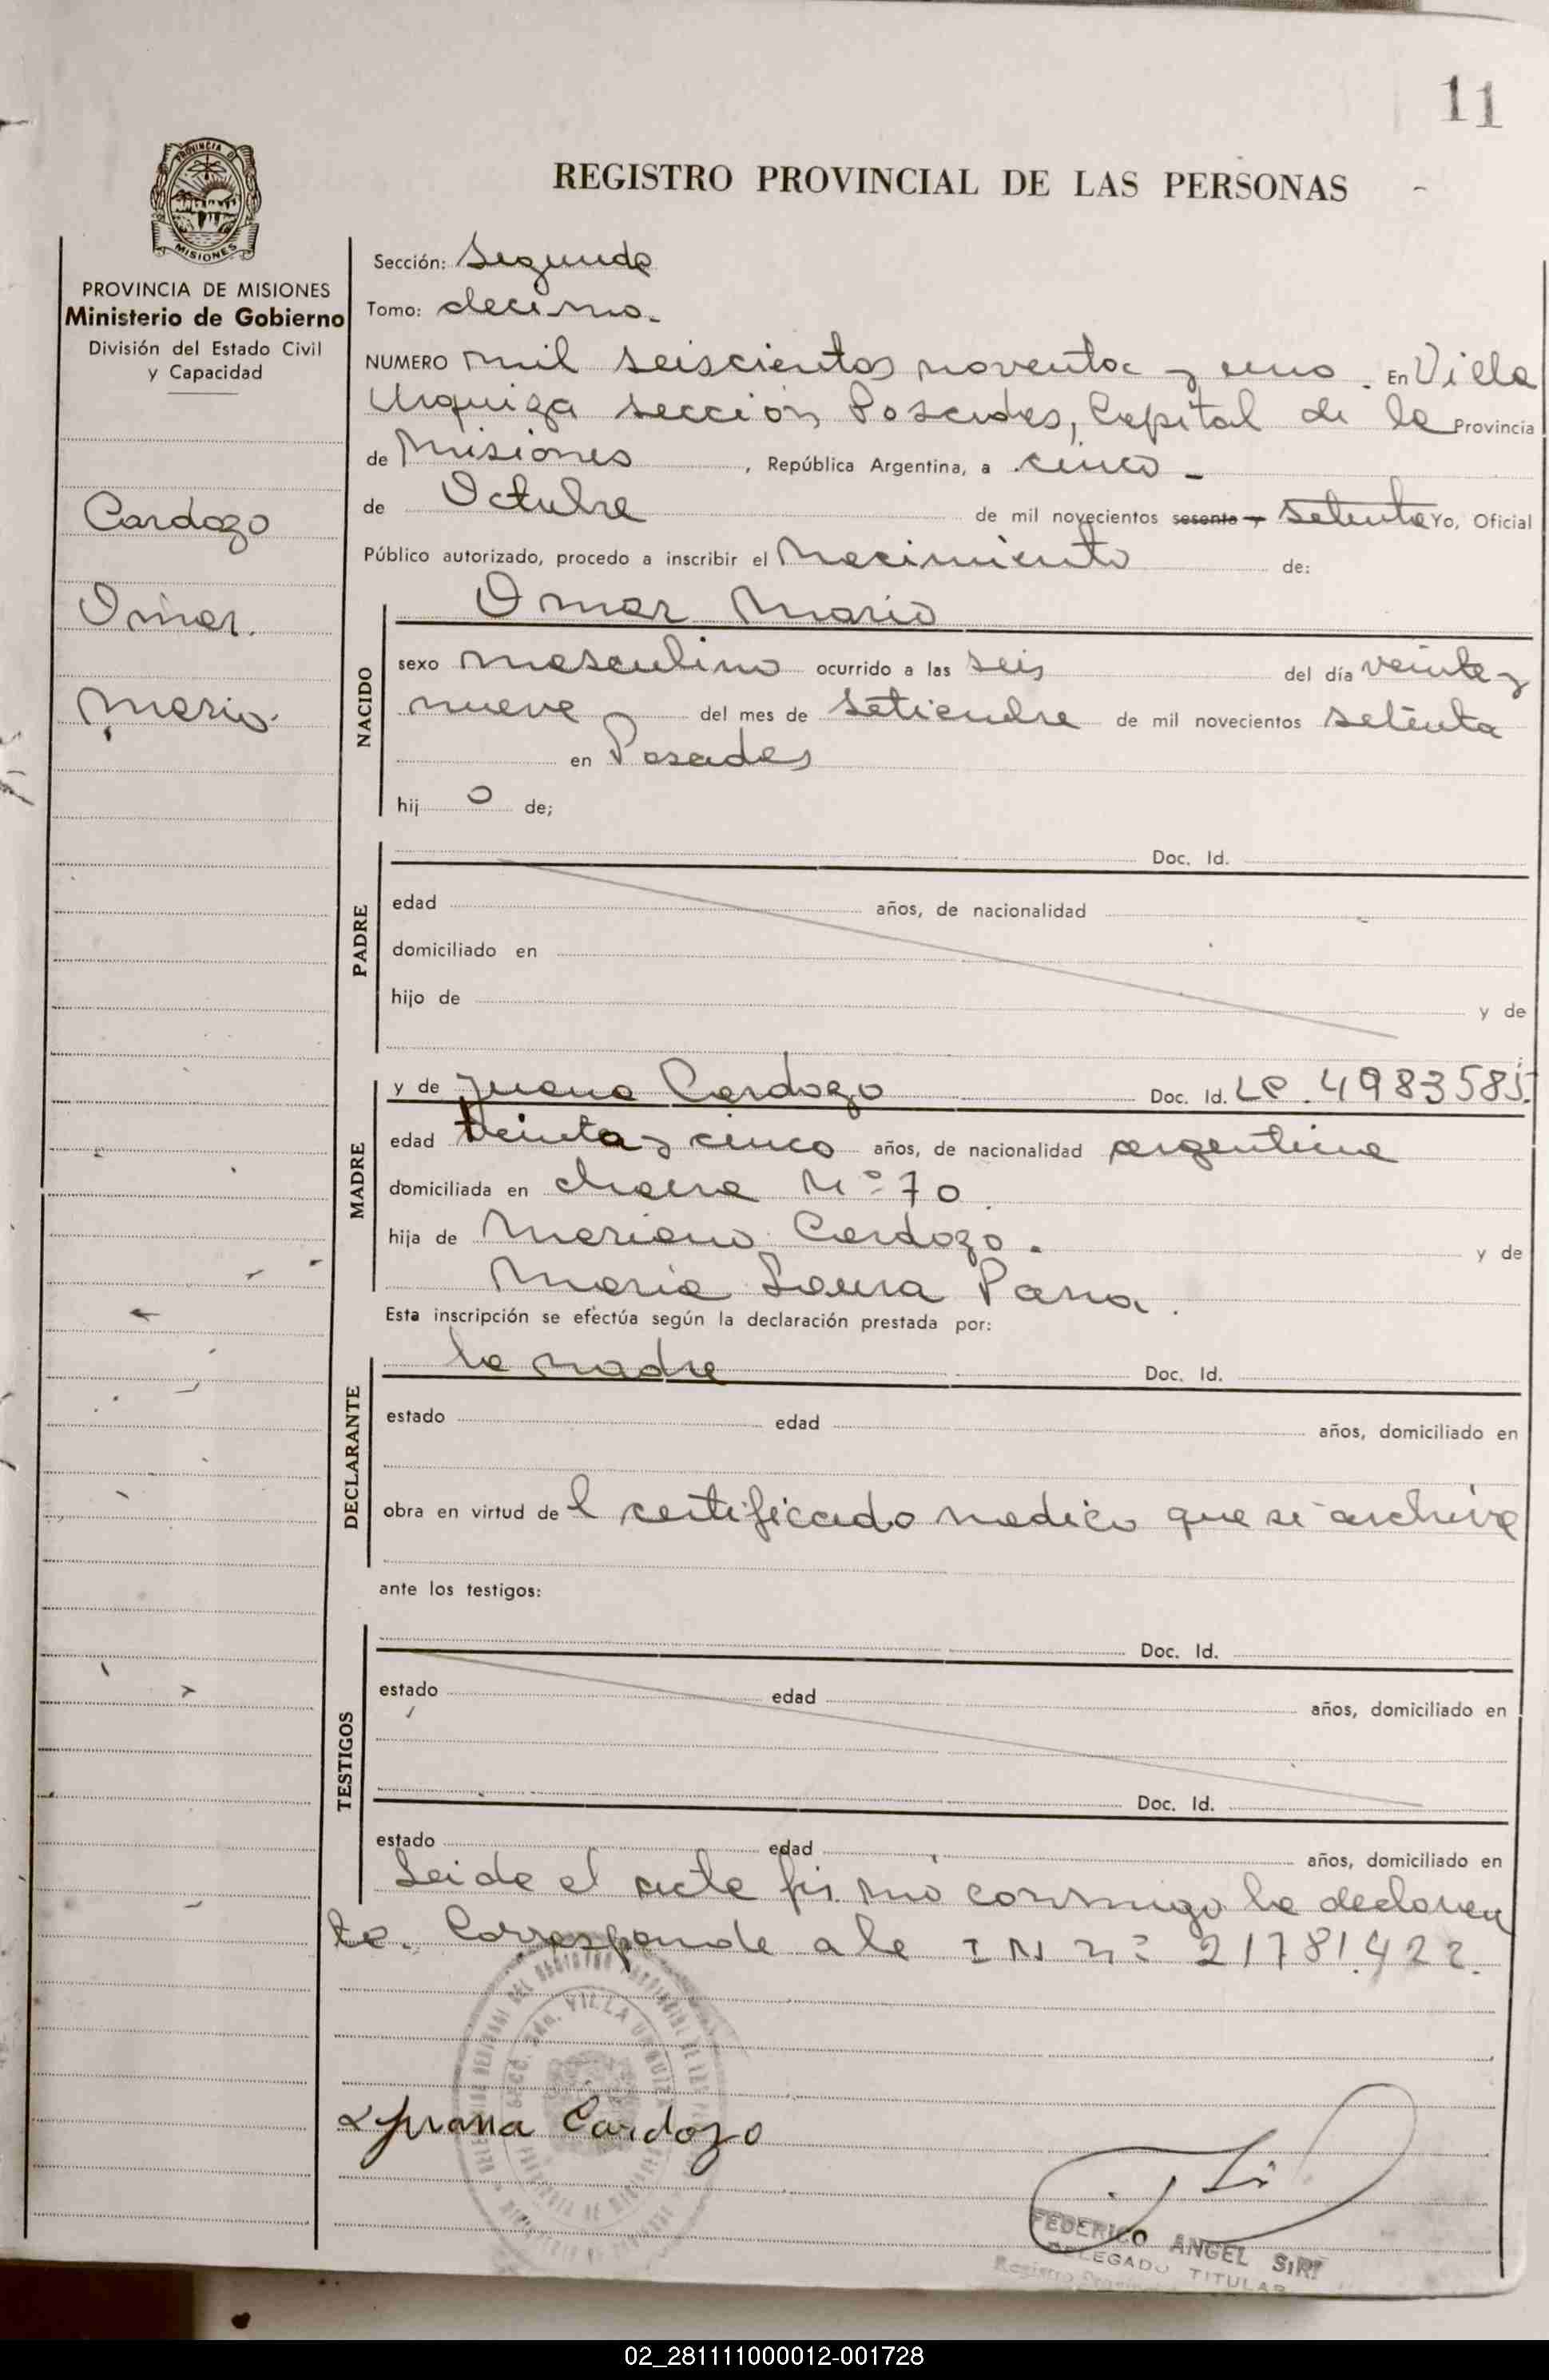 11
PROVINCIA DE
MISIONES
REGISTRO PROVINCIAL DE LAS PERSONAS
PROVINCIA DE MISIONES
Ministerio de Gobierno
División del Estado Civil
y Capacidad
Cardozo
Omar.
Mario.
Sección: Segunda
Tomo: decimo.
NUMERO mil seiscientos noventa y uno. En Villa
Urquiza sección Posadas, Capital de la Provincia
de Misiones, República Argentina, a cinco
de Octubre de mil novecientos sesenta y setenta Yo, Oficial
Público autorizado, procedo a inscribir el Nacimiento de:
NACIDO
Omar Mario
sexo masculino ocurrido a las seis del día veinte y
nueve del mes de setiembre de mil novecientos setenta
en Posadas
hij o de;
PADRE
Doc. Id.
edad años, de nacionalidad
domiciliado en
hijo de y de
MADRE
y de Juana Cardozo Doc. Id. LC. 4983585.
edad treinta y cinco años, de nacionalidad argentina
domiciliada en chacra Nº 70.
hija de Mariano Cardozo. y de
Maria Laura
Esta inscripción se efectúa según la declaración prestada por:
DECLARANTE
la madre Doc. Id.
estado edad años, domiciliado en
obra en virtud de l certificado medico que se archiva
ante los testigos:
TESTIGOS
Doc. Id.
estado edad años, domiciliado en
Doc. Id.
estado edad años, domiciliado en
Leida el acta firmó conmigo la declaran
te. Corresponde a la I N nº 21781.422.
VILLA URQUIZA
Juana Cardozo
FEDERICO ANGEL SIRI
DELEGADO TITULAR
02_281111000012-001728